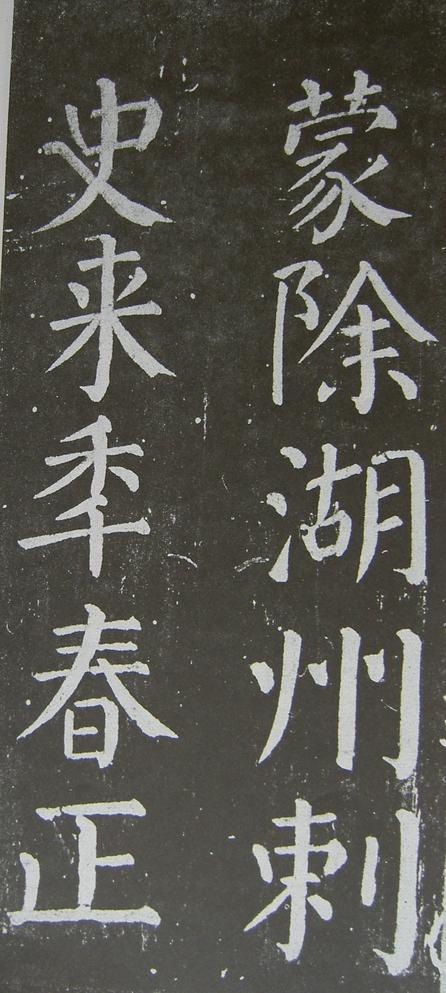 蒙除湖州刺
史来季春正